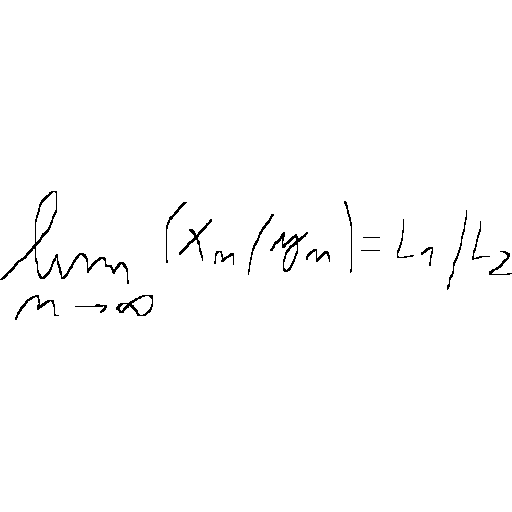 lim_{n→∞} (x_n/y_n) = L_1/L_2